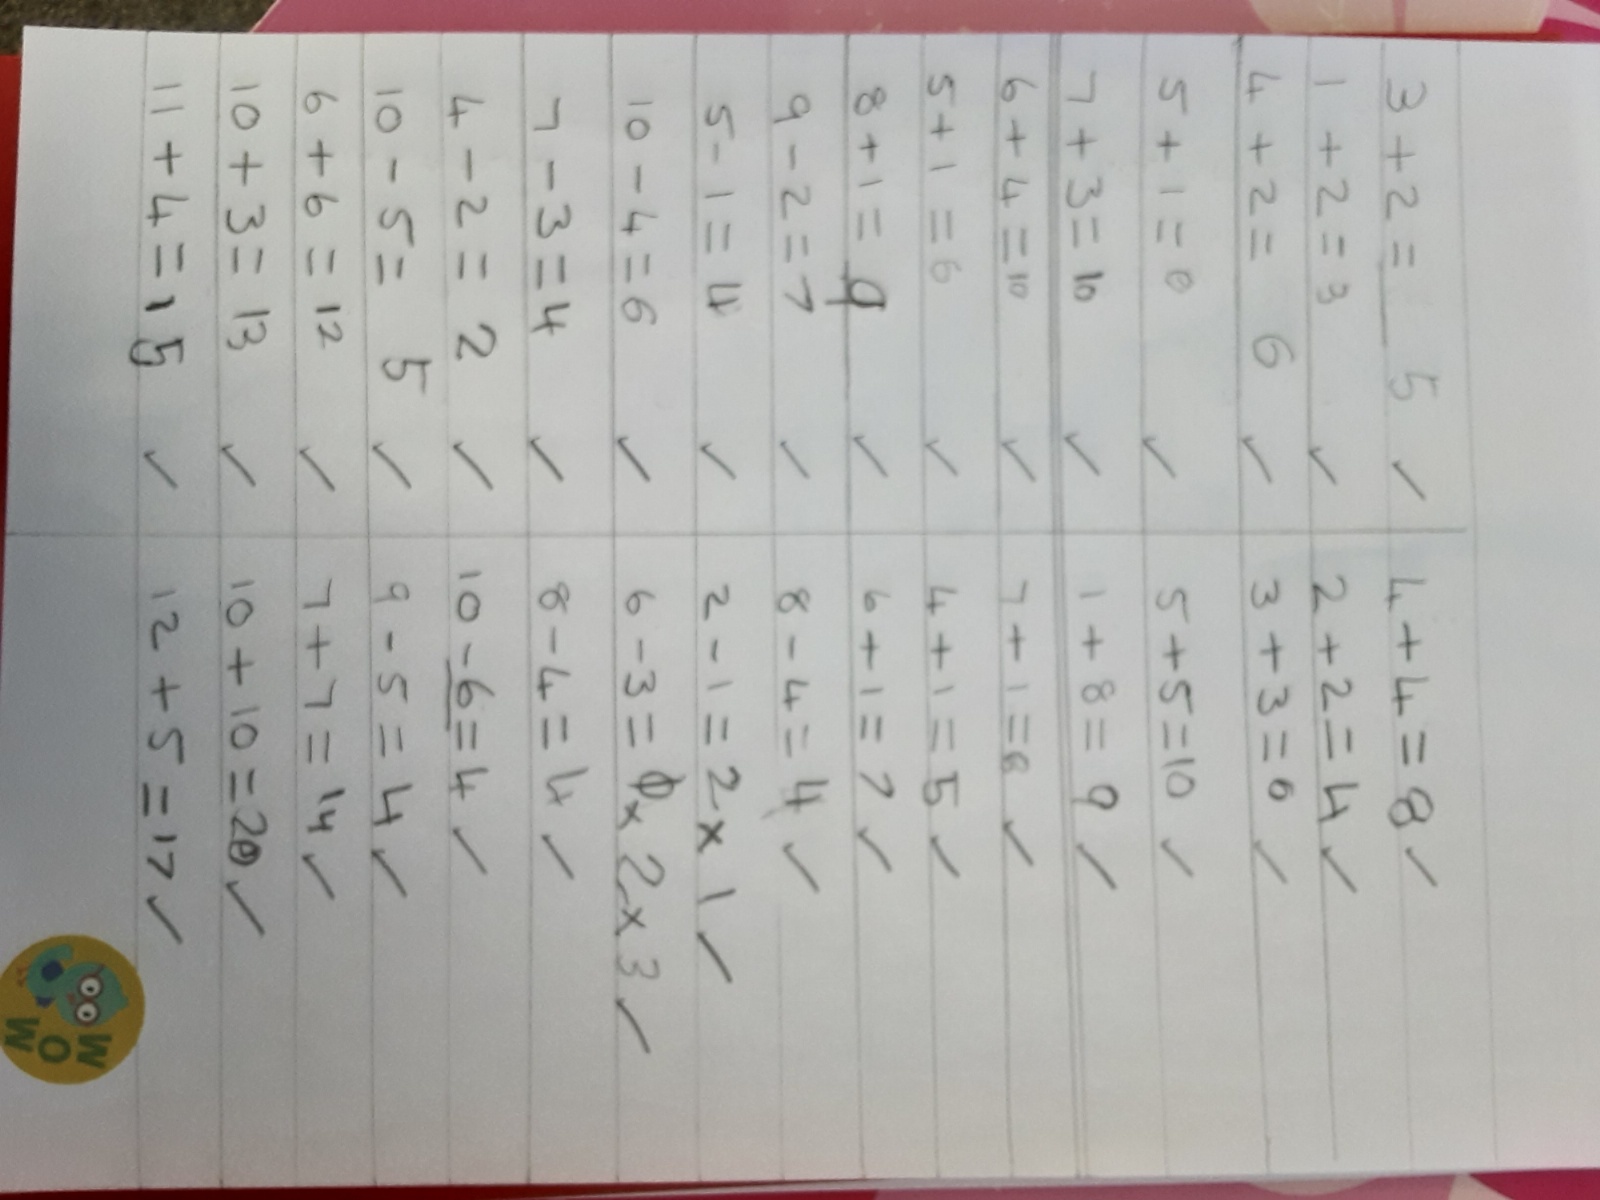 3+2= 5 ✓
1+2=3 ✓
4+2= 6 ✓
5+1=6 ✓
7+3=10 ✓
6+4=10 ✓
5+1=6 ✓
8+1=9 ✓
9-2=7 ✓
5-1=4 ✓
10-4=6 ✓
7-3=4 ✓
4-2=2 ✓
10-5= 5 ✓
6+6=12 ✓
10+3=13 ✓
11+4=15 ✓
4+4=8 ✓
2+2=4 ✓
3+3=6 ✓
5+5=10 ✓
1+8=9 ✓
7+1=8 ✓
4+1=5 ✓
6+1=7 ✓
8-4=4 ✓
2-1=2x 1 ✓
6-3= x 2x3 ✓
8-4=4 ✓
10-6=4 ✓
9-5=4 ✓
7+7=14 ✓
10+10=20 ✓
12+5=17 ✓
WOW